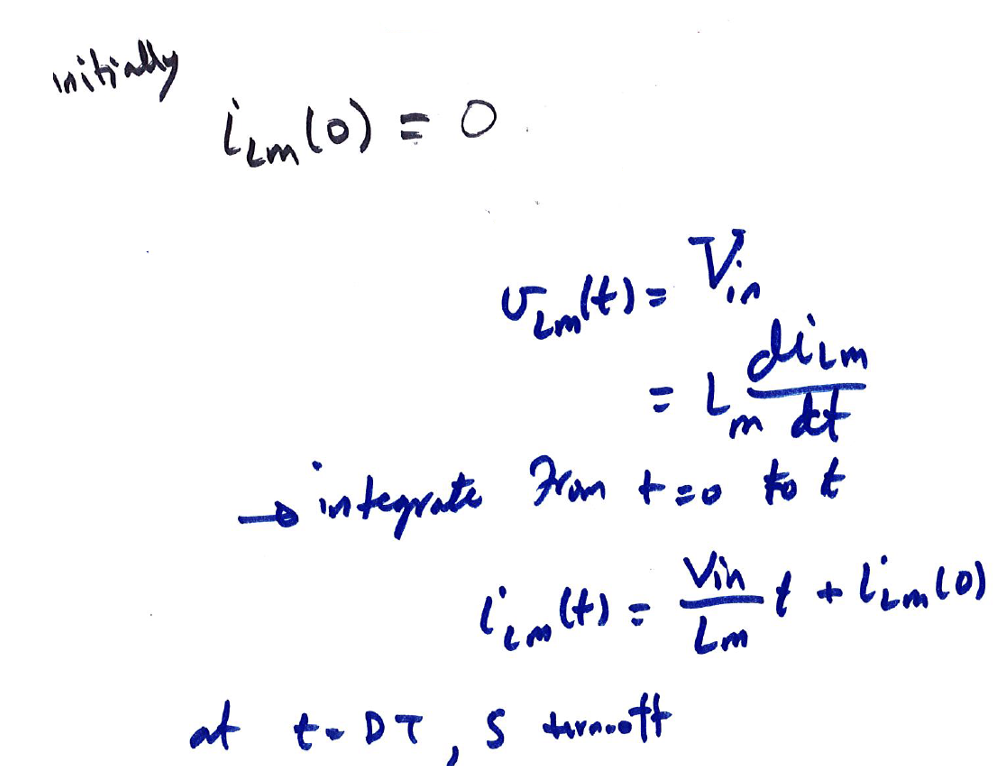 initially
i_Lm(0) = 0
v_Lm(t) = V_in
= L_m di_Lm/dt
→ integrate from t=0 to t
i_Lm(t) = Vin/Lm t + i_Lm(0)
at t=DT, S turn-off